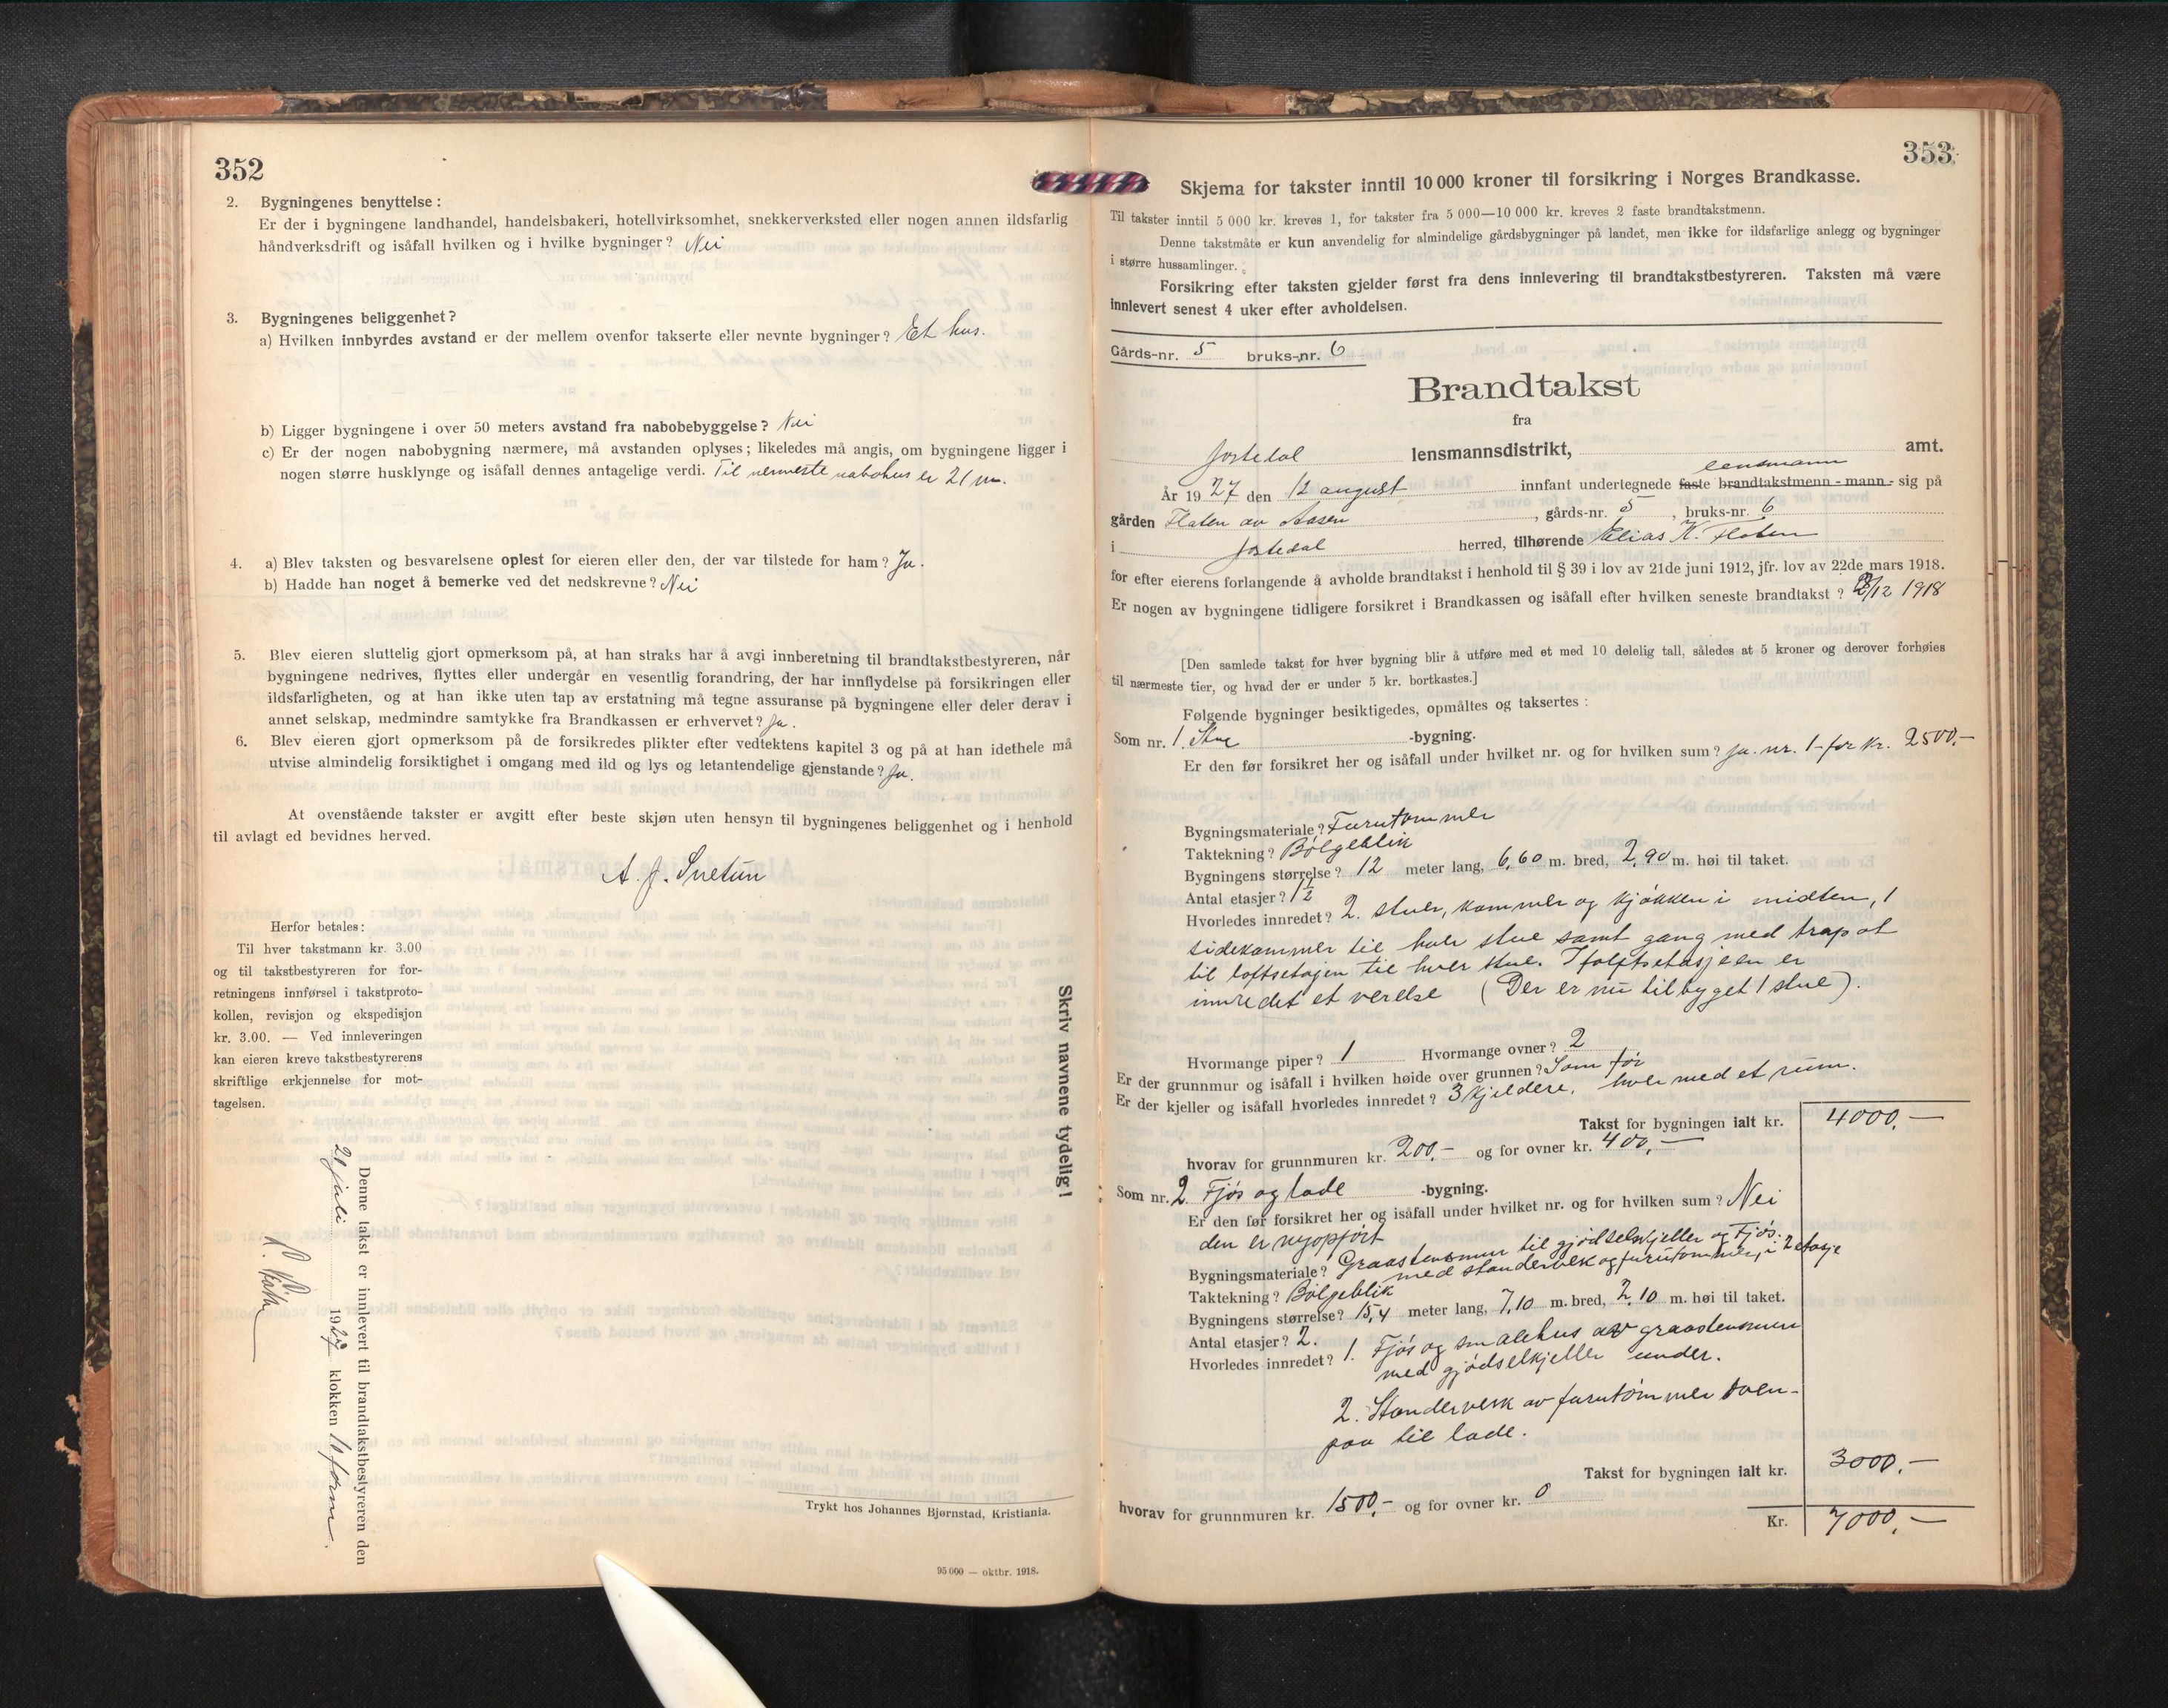 352
2. Bygningenes benyttelse :
Er der i bygningene landhandel, handelsbakeri, hotellvirksomhet, snekkerverksted eller nogen annen ildsfarlig
håndverksdrift og isåfall hvilken og i hvilke bygninger? Nei
3. Bygningenes beliggenhet?
a) Hvilken innbyrdes avstand er der mellem ovenfor takserte eller nevnte bygninger? Et hus.
b) Ligger bygningene i over 50 meters avstand fra nabobebyggelse? Nei
c) Er der nogen nabobygning nærmere, må avstanden oplyses; likeledes må angis, om bygningene ligger i
nogen større husklynge og isåfall dennes antagelige verdi. Til nermeste nabohus er 21 m.
4. a) Blev taksten og besvarelsene oplest for eieren eller den, der var tilstede for ham? Ja.
b) Hadde han noget å bemerke ved det nedskrevne? Nei
5. Blev eieren sluttelig gjort opmerksom på, at han straks har å avgi innberetning til brandtakstbestyreren, når
bygningene nedrives, flyttes eller undergår en vesentlig forandring, der har innflydelse på forsikringen eller
ildsfarligheten, og at han ikke uten tap av erstatning må tegne assuranse på bygningene eller deler derav i
annet selskap, medmindre samtykke fra Brandkassen er erhvervet? Ja.
6. Blev eieren gjort opmerksom på de forsikredes plikter efter vedtektens kapitel 3 og på at han idethele må
utvise almindelig forsiktighet i omgang med ild og lys og letantendelige gjenstande? Ja.
At ovenstående takster er avgitt efter beste skjøn uten hensyn til bygningenes beliggenhet og i henhold
til avlagt ed bevidnes herved.
A. J. Snetun
Herfor betales:
Til hver takstmann kr. 3.00
og til takstbestyreren for for-
retningens innførsel i takstproto-
kollen, revisjon og ekspedisjon
kr. 3.00. — Ved innleveringen
kan eieren kreve takstbestyrerens
skriftlige erkjennelse for mot-
tagelsen.
Denne takst er innlevert til brandtakstbestyreren den
21 juli 1927 klokken 10 form.
Skriv navnene tydelig!
Trykt hos Johannes Bjørnstad, Kristiania.
95 000 — oktbr. 1918.
353
Skjema for takster inntil 10 000 kroner til forsikring i Norges Brandkasse.
Til takster inntil 5 000 kr. kreves 1, for takster fra 5 000—10 000 kr. kreves 2 faste brandtakstmenn.
Denne takstmåte er kun anvendelig for almindelige gårdsbygninger på landet, men ikke for ildsfarlige anlegg og bygninger
i større hussamlinger.
Forsikring efter taksten gjelder først fra dens innlevering til brandtakstbestyreren. Taksten må være
innlevert senest 4 uker efter avholdelsen.
Gårds-nr. 5 bruks-nr. 6
Brandtakst
fra
Jostedal lensmannsdistrikt, amt.
lensmann
År 1927 den 12 august innfant undertegnede faste brandtakstmenn - mann - sig på
gården Flaten av Aasen, gårds-nr. 5, bruks-nr. 6
i Jostedal herred, tilhørende Elias K. Flaten
for efter eierens forlangende å avholde brandtakst i henhold til § 39 i lov av 21de juni 1912, jfr. lov av 22de mars 1918.
Er nogen av bygningene tidligere forsikret i Brandkassen og isåfall efter hvilken seneste brandtakst ? /12 1918
[Den samlede takst for hver bygning blir å utføre med et med 10 delelig tall, således at 5 kroner og derover forhøies
til nærmeste tier, og hvad der er under 5 kr. bortkastes.]
Følgende bygninger besiktigedes, opmåltes og taksertes :
Som nr. 1. Stue -bygning.
Er den før forsikret her og isåfall under hvilket nr. og for hvilken sum? Ja. nr. 1 - for kr. 2500,-
Bygningsmateriale? Furutømmer
Taktekning? Bølgeblik
Bygningens størrelse? 12 meter lang, 6,60 m. bred, 2,90 m. høi til taket.
Antal etasjer? 1½
Hvorledes innredet? 2. stuer, kammer og kjøkken i midten, 1
sidekammer til hver stue samt gang med trap ot
til loftsetagen til hver stue. I loftsetasjeen er
innredet et verelse (Der er nu tilbyget 1 stue).
Hvormange piper? 1 Hvormange ovner? 2
Er der grunnmur og isåfall i hvilken høide over grunnen? Som før
Er der kjeller og isåfall hvorledes innredet? 3 kjeldere, hver med et rum.
Takst for bygningen ialt kr. 4000,-
hvorav for grunnmuren kr. 200,- og for ovner kr. 400,-
Som nr. 2 Fjøs og lade -bygning.
Er den før forsikret her og isåfall under hvilket nr. og for hvilken sum? Nei
den er nyopført
Bygningsmateriale? Graastensmur til gjødselskjeller og Fjøs.
med standerverk og furutømmer, i 2 etasje
Taktekning? Bølgeblik
Bygningens størrelse? 15,4 meter lang, 7,10 m. bred, 2,10 m. høi til taket.
Antal etasjer? 2.
Hvorledes innredet? 1. Fjøs og smalehus av graastensmur
med gjødselkjeller under.
2. Standerverk av furutømmer oven-
paa til lade.
Takst for bygningen ialt kr. 3000,-
hvorav for grunnmuren kr. 1500,- og for ovner kr. 0
Kr. 7000,-